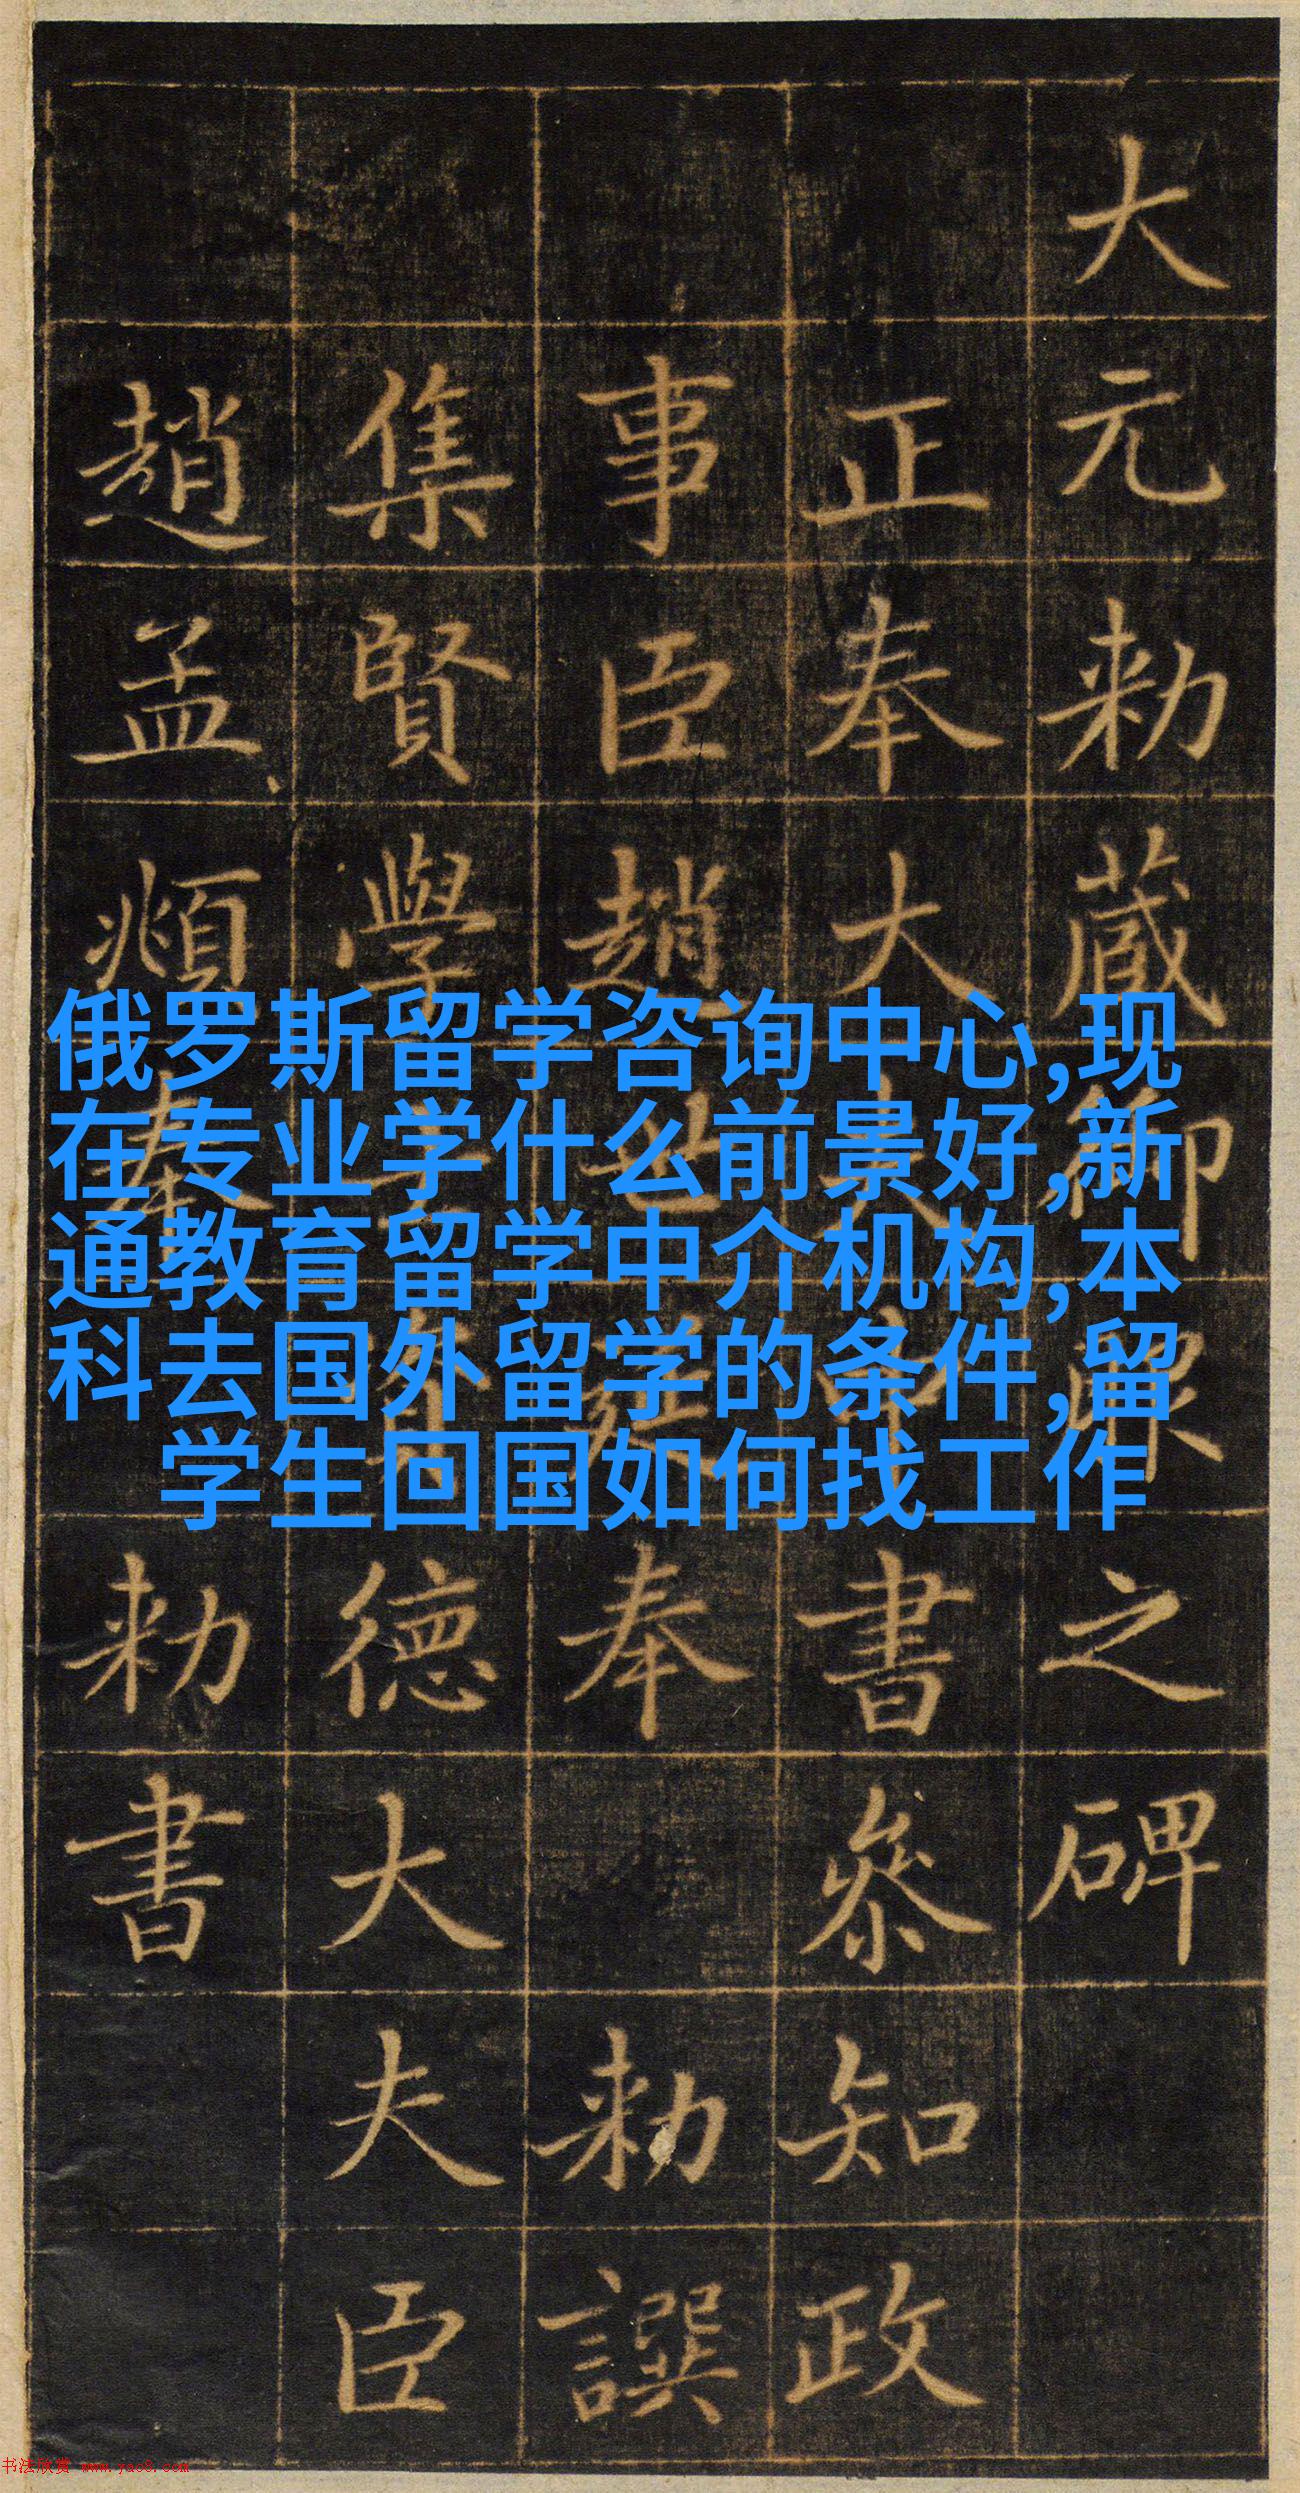 俄罗斯留学咨询中心,现
在专业学什么前景好,新
通教育留学中介机构,本
科去国外留学的条件,留
学生回国如何找工作
大元勑蔵御服之碑
正奉大夫中書叅知政
事臣趙世延奉勑譔
集賢學士資德大夫臣
趙孟頫奉勑書
书法欣赏 www.yac8.com